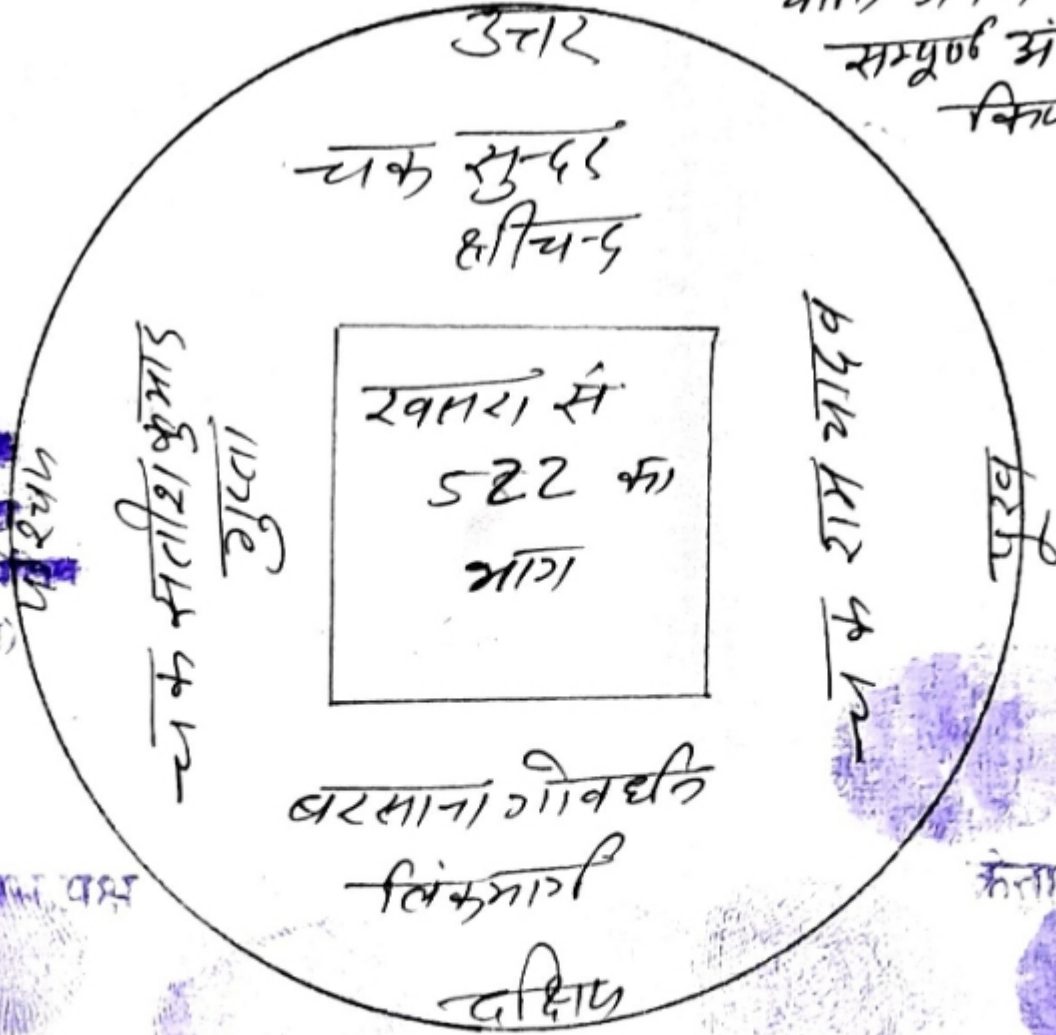 सम्पूर्ण
उत्तर
चक सुन्दर
श्रीचन्द
चक सतीश कुमार
गुप्ता
पश्चिम
खसरा सं
522 का
भाग
चक राम यादव
पूरव
बरसाना गोवर्धन
लिंकमार्ग
दक्षिण